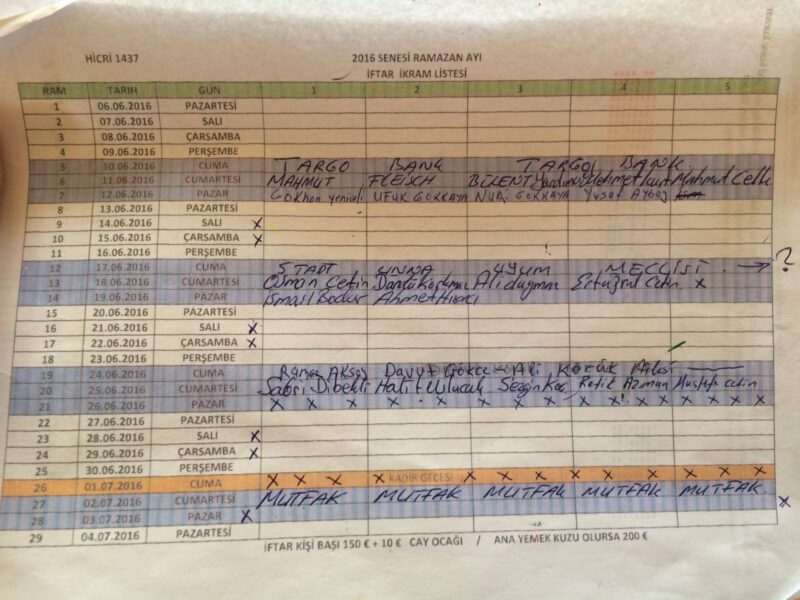 HİCRİ 1437 2016 SENESİ RAMAZAN AYI
İFTAR İKRAM LİSTESİ
RAM TARIH GÜN 1 2 3 4 5
1 06.06.2016 PAZARTESİ
2 07.06.2016 SALI
3 08.06.2016 ÇARSAMBA
4 09.06.2016 PERŞEMBE
5 10.06.2016 CUMA TARGO BANK TARGO BANK
6 11.06.2016 CUMARTESİ MAHMUT FLEISCH BÜLENT Mahmut
7 12.06.2016 PAZAR Gökhan UFUK GÖKKAYA NURİ GÖKKAYA Yusuf
8 13.06.2016 PAZARTESİ
9 14.06.2016 SALI X
10 15.06.2016 ÇARSAMBA X
11 16.06.2016 PERŞEMBE
12 17.06.2016 CUMA STADT UNNA UYUM MECLİSİ → ?
13 18.06.2016 CUMARTESİ Osman Çetin Ertuğrul Çetin X
14 19.06.2016 PAZAR İsmail Ahmet
15 20.06.2016 PAZARTESİ
16 21.06.2016 SALI X
17 22.06.2016 ÇARSAMBA X
18 23.06.2016 PERŞEMBE
19 24.06.2016 CUMA Davut Gökçe - Ali Körük Ailesi
20 25.06.2016 CUMARTESİ Sabri Dibekli Halit Ulucak Sezgin Koç Refik Azman Mustafa Çetin
21 26.06.2016 PAZAR X X X X X X X X X X X X X X
22 27.06.2016 PAZARTESİ
23 28.06.2016 SALI X
24 29.06.2016 ÇARSAMBA X
25 30.06.2016 PERŞEMBE
26 01.07.2016 CUMA X X X X KADİR GECESİ X X X X X X X X
27 02.07.2016 CUMARTESİ MUTFAK MUTFAK MUTFAK MUTFAK MUTFAK
28 03.07.2016 PAZAR X X
29 04.07.2016 PAZARTESİ
İFTAR KİŞİ BAŞI 150 € + 10 € CAY OCAĞI / ANA YEMEK KUZU OLURSA 200 €